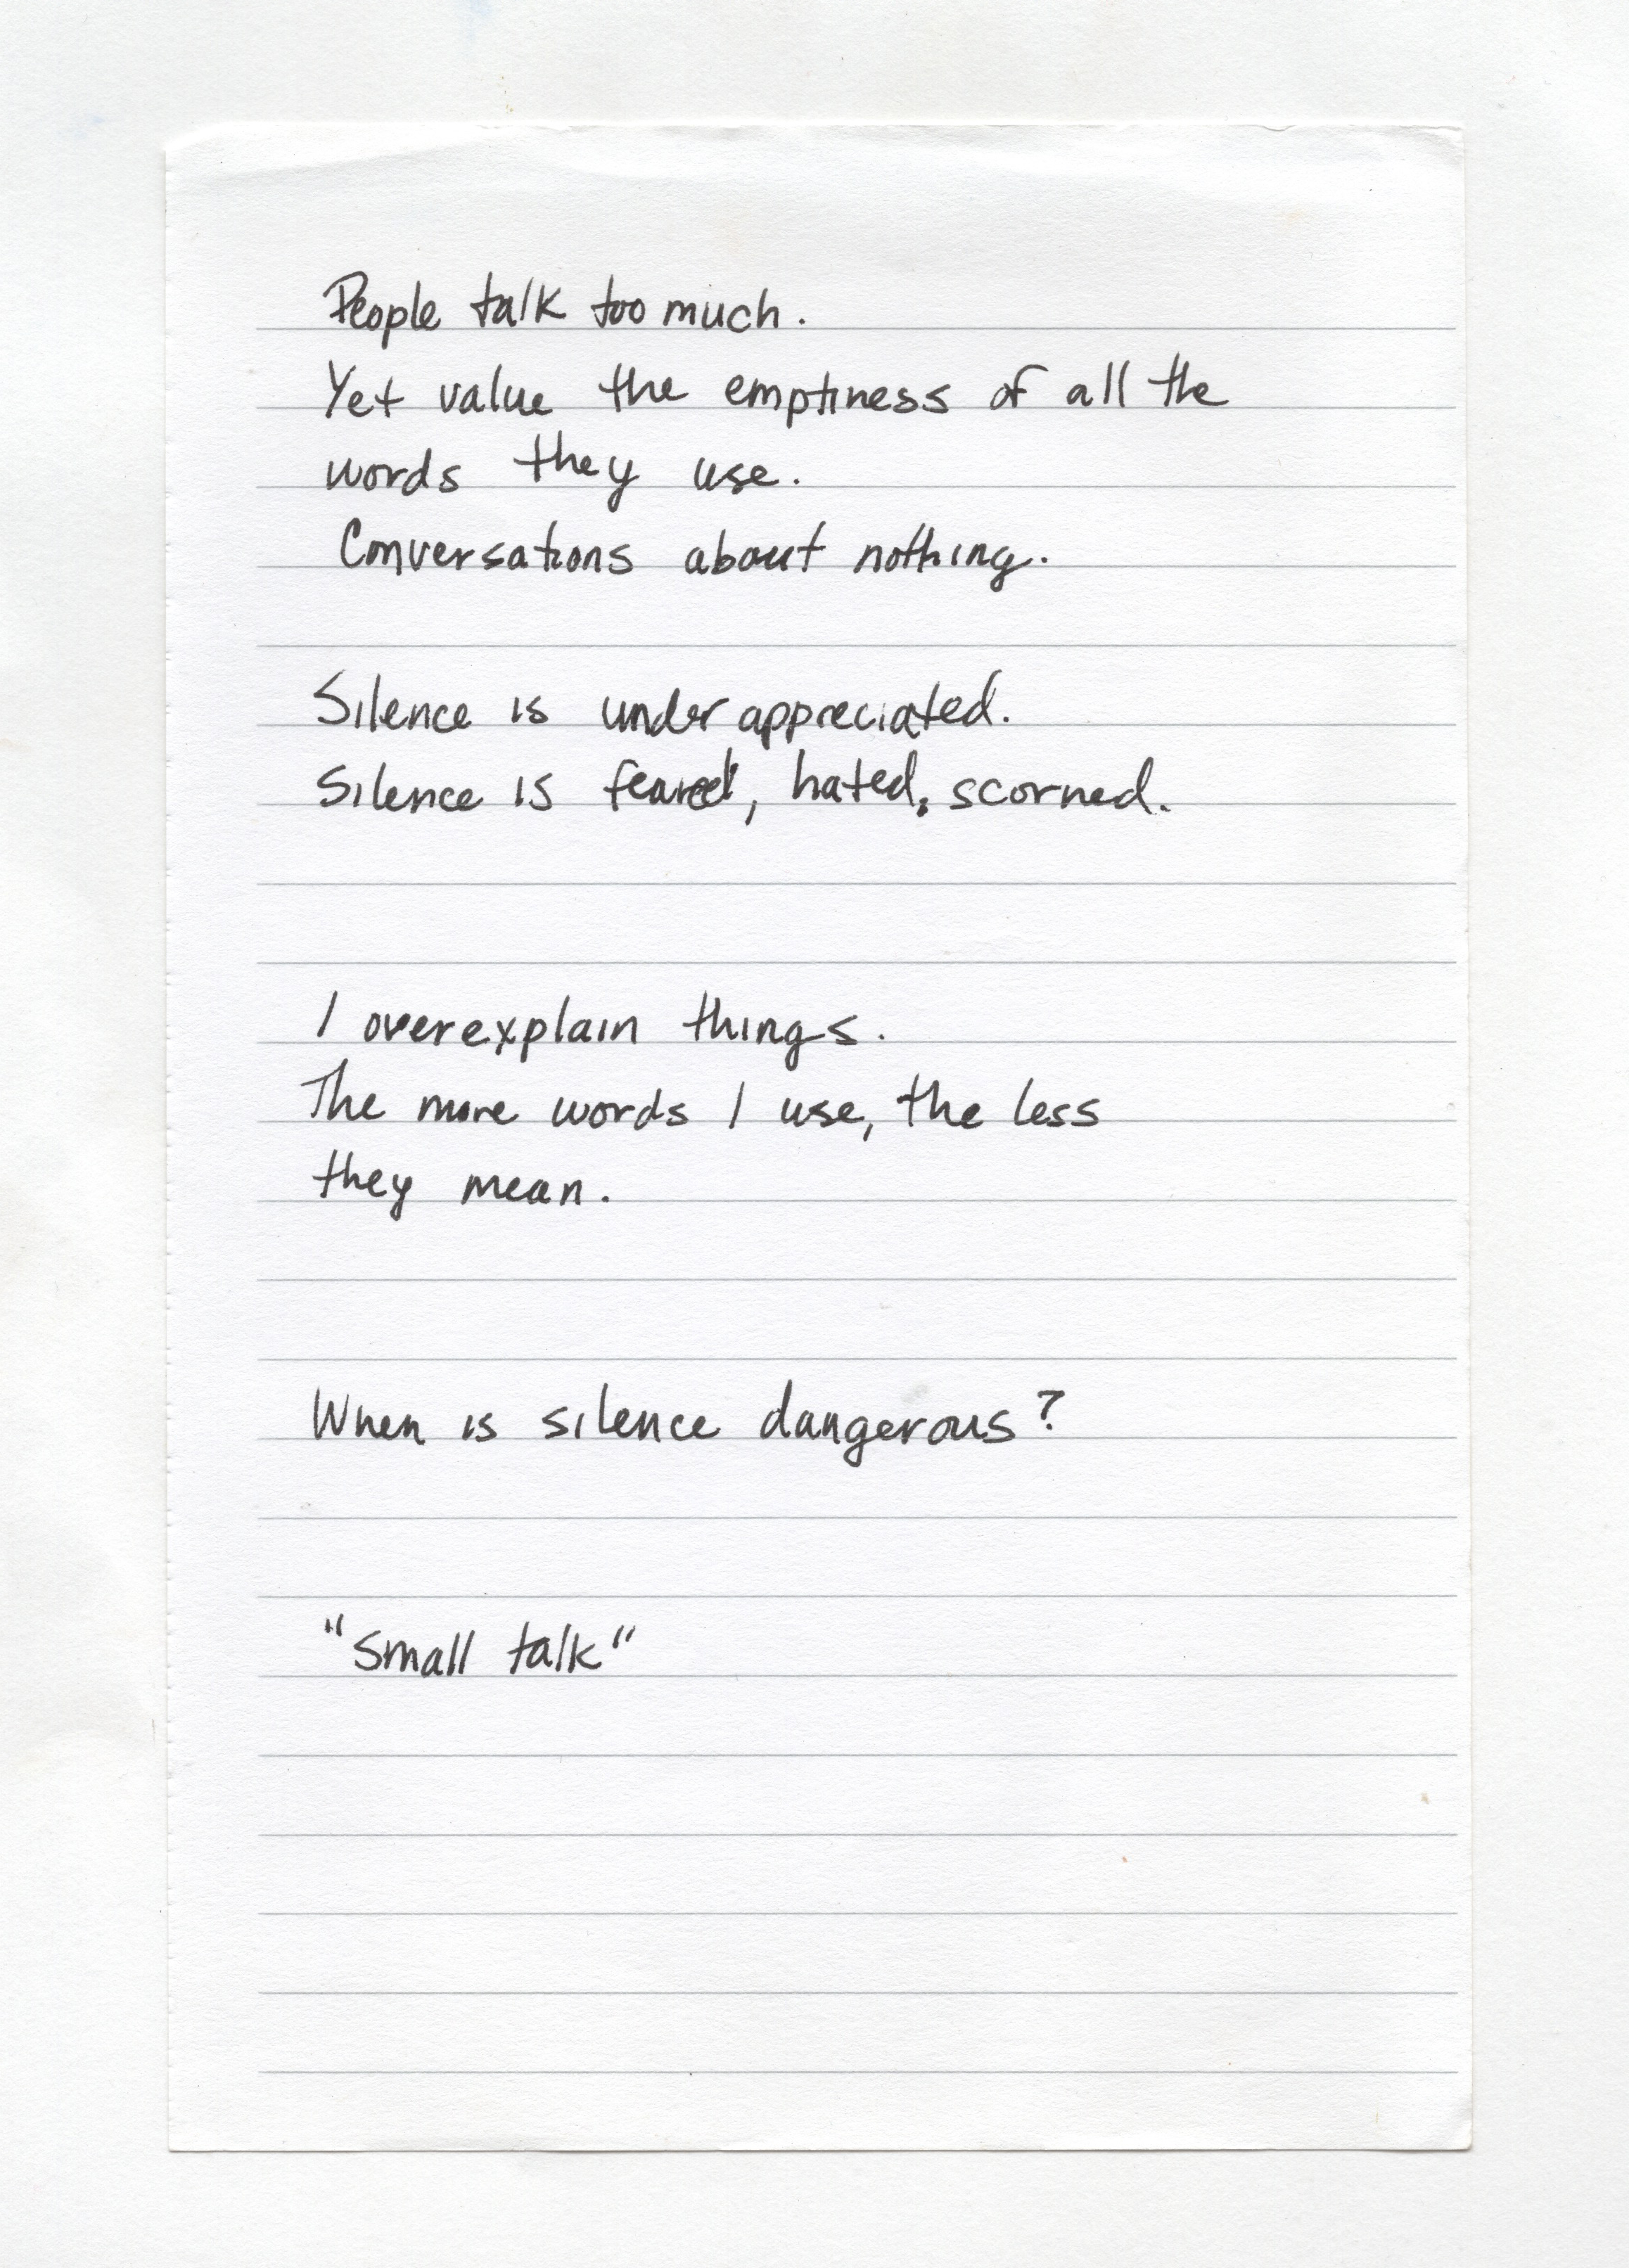 People talk too much.
Yet value the emptiness of all the
words they use.
Conversations about nothing.
Silence is underappreciated.
Silence is feared, hated, scorned.
I overexplain things.
The more words I use, the less
they mean.
When is silence dangerous?
"Small talk"